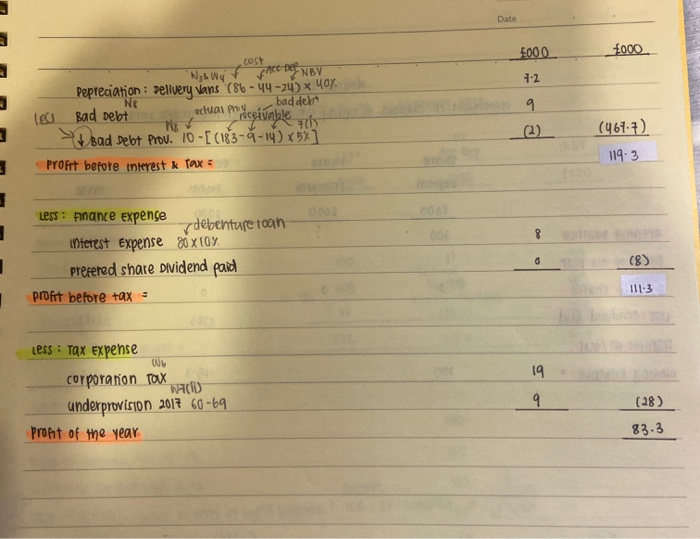 Date
£000 £000
cost
N3& W4 Acc Dep NBV
Depreciation : Delivery Vans (86 - 44 - 24) × 40% 7.2
N8 actual Prov bad debt
(es) Bad Debt receivable 9
N8 7(i)
↓ Bad Debt Prov. 10 - [(183 - 9 - 14) × 5%] (2) (467.7)
Profit before interest & Tax = 119.3
Less : Finance Expense
debenture loan
interest Expense 80 × 10% 8
prefered share Dividend paid 0 (8)
profit before tax = 111.3
Less : Tax Expense
W6
corporation Tax 19
W7(ii)
underprovision 2017 60-69 9 (28)
Profit of the year 83.3